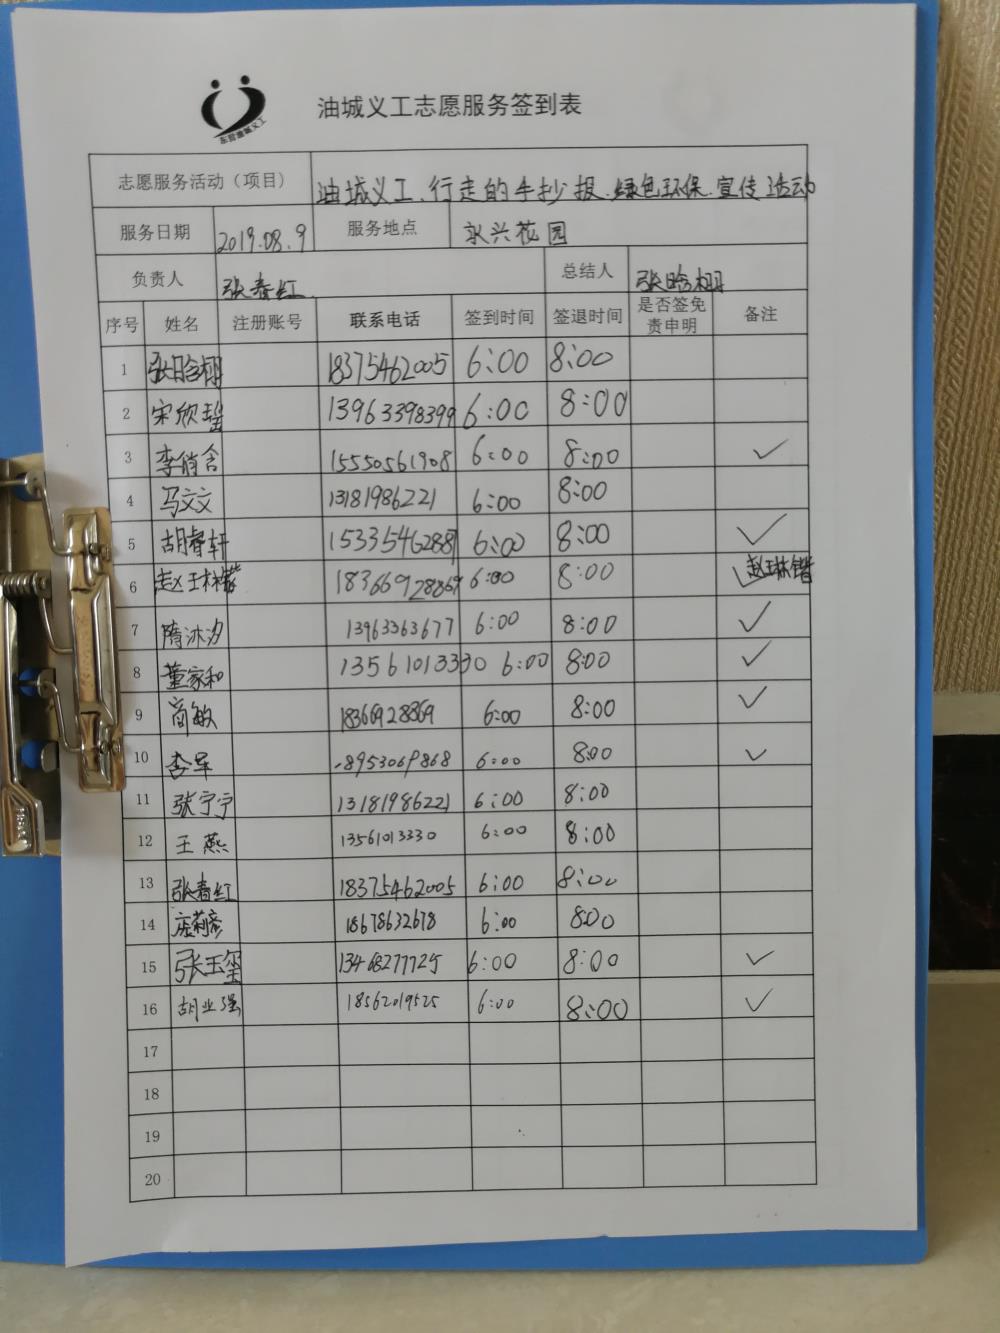 东营油城义工
油城义工志愿服务签到表
志愿服务活动（项目） 油城义工、行走的手抄报、绿色环保、宣传活动
服务日期 2019.08.9 服务地点 永兴花园
负责人 张春红、 总结人 张晗栩
序号 姓名 注册账号 联系电话 签到时间 签退时间 是否签免责申明 备注
1 张晗栩 18375462005 6:00 8:00
2 宋欣瑶 13963398399 6:00 8:00
3 李俏含 15550561908 6:00 8:00 ✓
4 马文文 13181986221 6:00 8:00
5 胡睿轩 15335462887 6:00 8:00 ✓
6 18366928869 6:00 8:00 ✓
7 隋沐汐 13963363677 6:00 8:00 ✓
8 董家和 13561013330 6:00 8:00 ✓
9 商敏 18366928869 6:00 8:00 ✓
10 李军 8953069868 6:00 8:00 ✓
11 张宁宁 13181986221 6:00 8:00
12 王燕 13561013330 6:00 8:00
13 张春红 18375462005 6:00 8:00
14 18678632678 6:00 8:00
15 张玉玺 13468277725 6:00 8:00 ✓
16 胡业强 18562019525 6:00 8:00 ✓
17
18
19
20